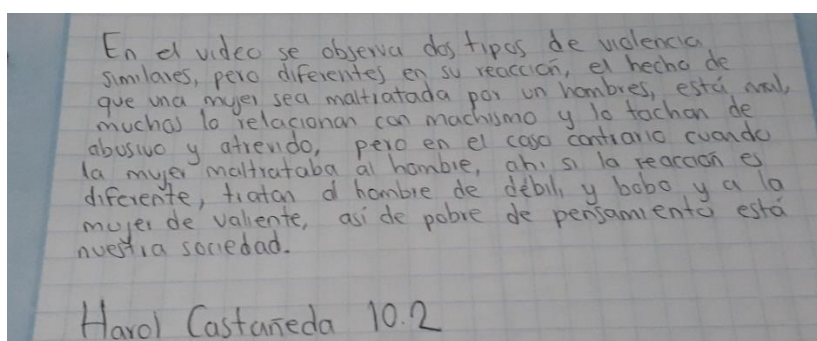 En el video se observa dos tipos de violencia,
similares, pero diferentes en su reacción, el hecho de
que una mujer sea maltratada por un hombres, está mal,
muchos lo relacionan con machismo y lo tachan de
abusivo y atrevido, pero en el caso contrario cuando
la mujer maltrataba al hombre, ahi si la reacción es
diferente, tratan al hombre de débil, y bobo y a la
mujer de valiente, asi de pobre de pensamiento está
nuestra sociedad.
Harol Castañeda 10.2